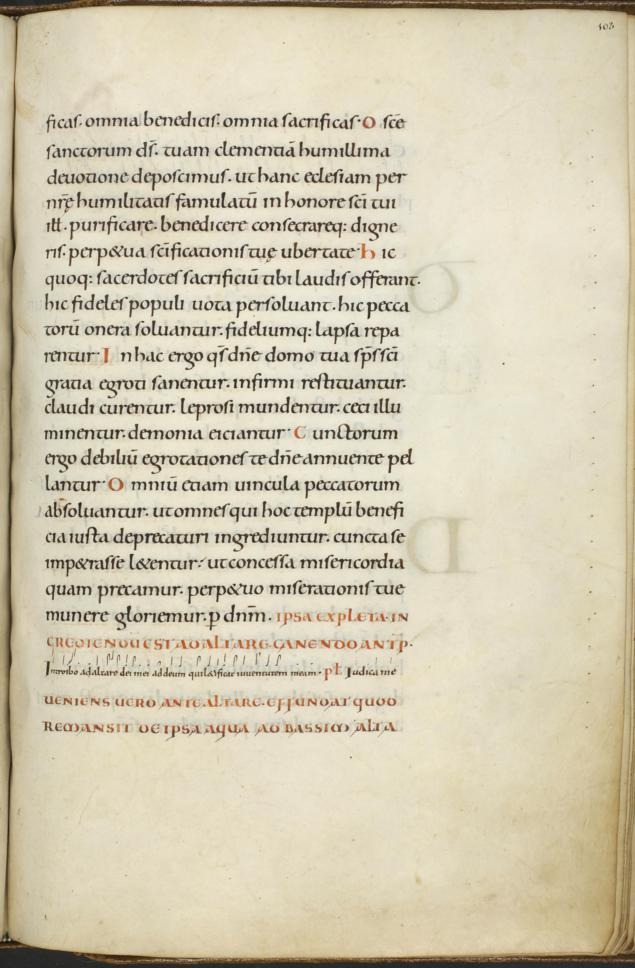 103
ficas. omnia benedicis. omnia sacrificas. O sc̄e
sanctorum ds̄. tuam clementiā humillima
deuotione deposcimus. ut hanc eclesiam per
nr̄ę humilitatis famulatū in honore sc̄i tui
ill̄. purificare. benedicere consecrareq: digne
ris. perp&ua sc̄ificationis tuę ubertate. h ic
quoq: sacerdotes sacrificiū tibi laudis offerant.
hic fideles populi uota persoluant. hic pecca
torū onera soluantur. fideliumq: lapsa repa
rentur. I n hac ergo qs̄ dn̄e domo tua sp̄s sc̄i
gratia egroti sanentur. infirmi restituantur.
claudi curentur. leprosi mundentur. ceci illu
minentur. demonia eiciantur. C unctorum
ergo debiliū egrotationes te dn̄e annuente pel
lantur. O mniū etiam uincula peccatorum
absoluantur. ut omnes qui hoc templū benefi
cia iusta deprecaturi ingrediuntur. cuncta se
imp&rasse l&entur. ut concessa misericordia
quam precamur. perp&uo miserationis tue
munere gloriemur. p̄ dnm̄. IPSA EXPLETA. IN
CREDIENDU EST AD ALTARE CANENDO ANTP.
Introibo ad altare dei mei ad deum qui l&ificat iuuentutem meam. ps̄ Iudica me
UENIENS UERO ANTE ALTARE. EFFUNDAT QUOD
REMANSIT DE IPSA AQUA AD BASSIM ALTA